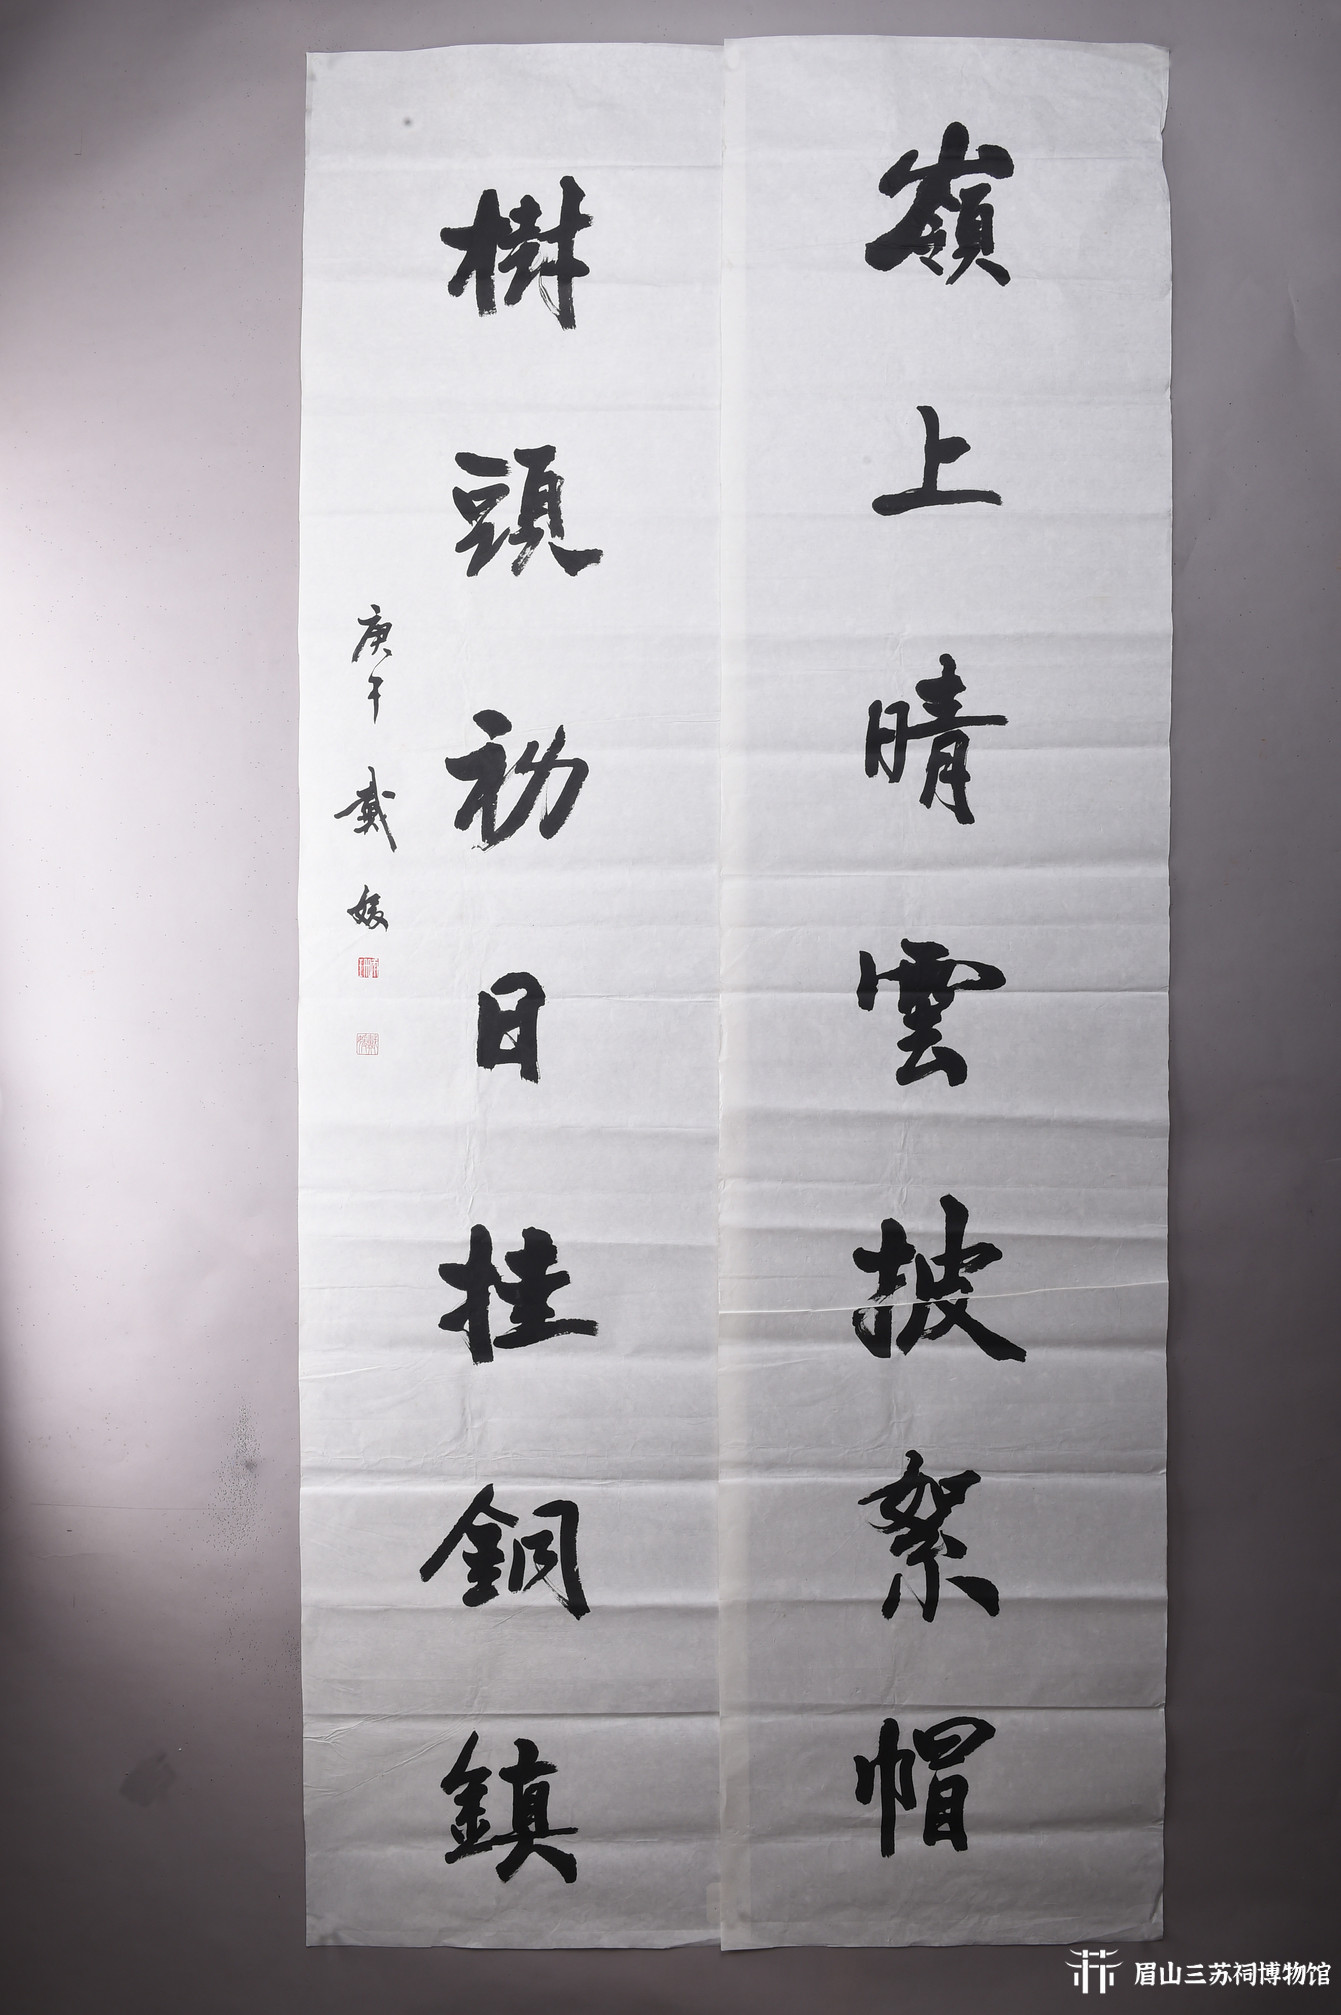 嶺上晴雲披絮帽
樹頭初日挂銅鎮
庚午 戴媛
眉山三苏祠博物馆